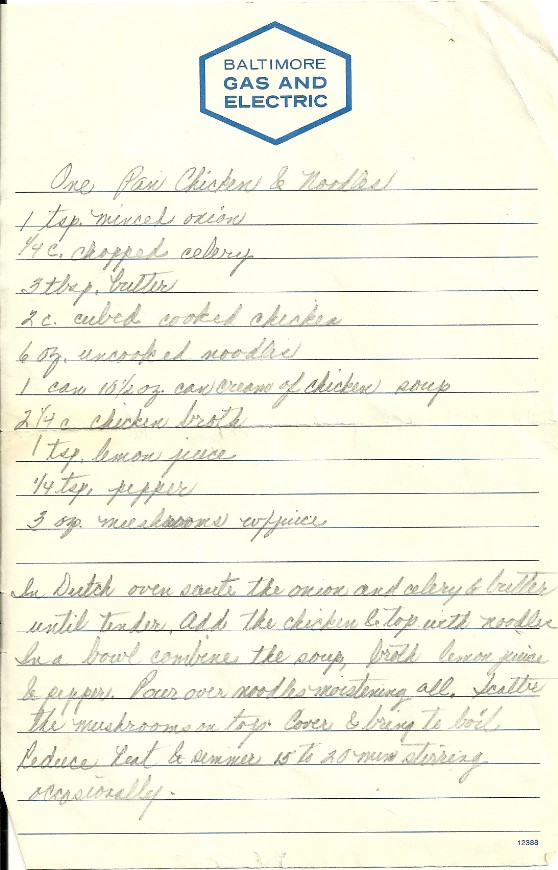 BALTIMORE
GAS AND
ELECTRIC
One Pan Chicken & Noodles
1 tsp. minced onion
1/4 c. chopped celery
3 tbsp. butter
2 c. cubed cooked chicken
6 oz. uncooked noodles
1 can 10 1/2 oz. can cream of chicken soup
2 1/4 c chicken broth
1 tsp. lemon juice
1/4 tsp. pepper
3 oz. mushrooms w/juice
In Dutch oven saute the onion and celery & butter
until tender. Add the chicken & top with noodles
In a bowl combine the soup, broth lemon juice
& pepper. Pour over noodles moistening all. Scatter
the mushrooms on top. Cover & bring to boil
Reduce heat & simmer 15 to 20 min stirring
occasionally.
12388